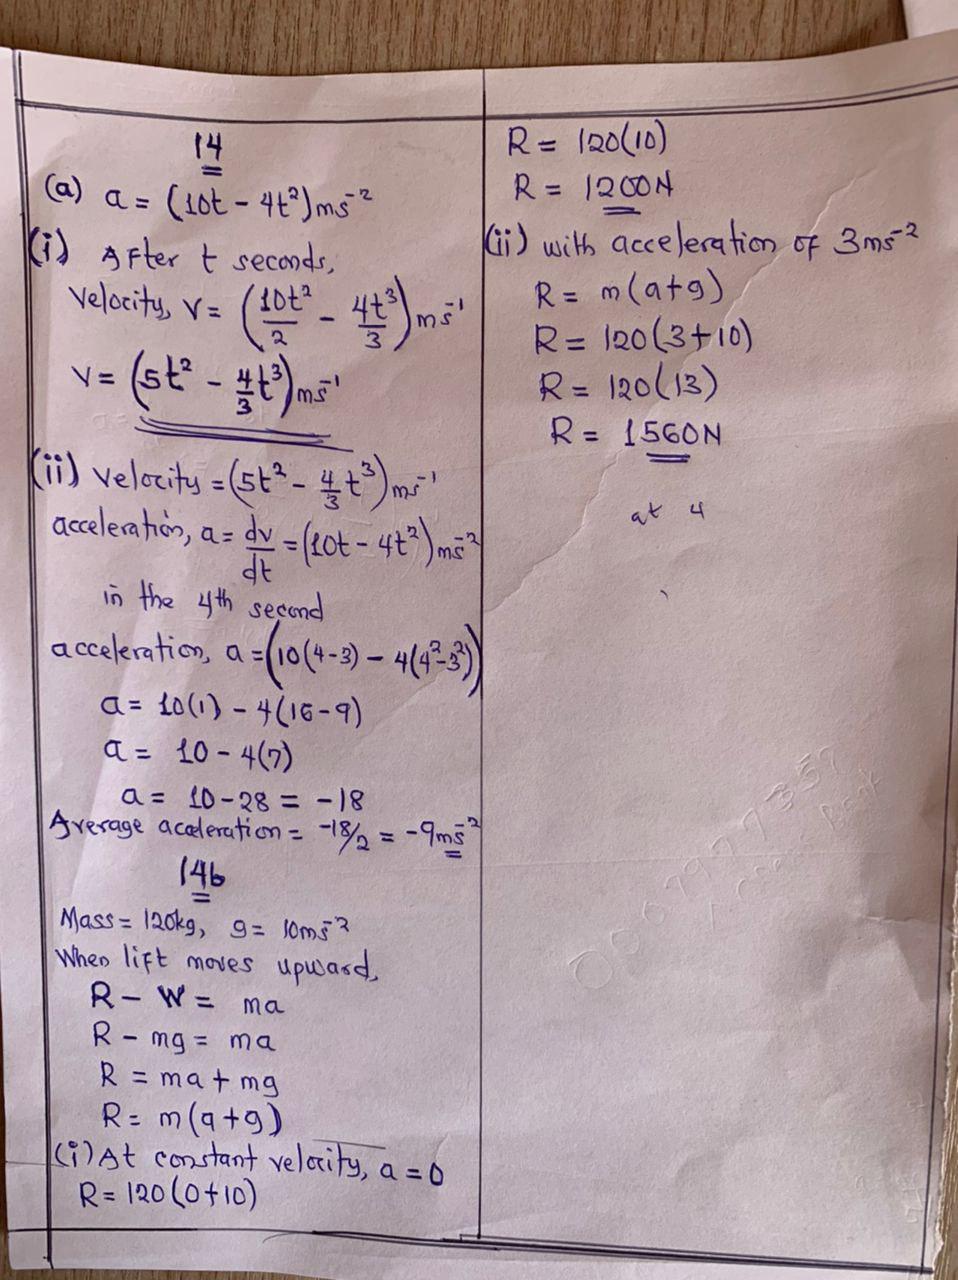 14
(a) a = (10t - 4t²)ms⁻²
(i) After t seconds,
Velocity, V = (10t²/2 - 4t³/3)ms⁻¹
V = (5t² - 4/3t³)ms⁻¹
(ii) Velocity = (5t² - 4/3t³)ms⁻¹
acceleration, a = dv/dt = (10t - 4t²)ms⁻²
in the 4th second
acceleration, a = (10(4-3) - 4(4²-3²))
a = 10(1) - 4(16-9)
a = 10 - 4(7)
a = 10-28 = -18
Average acceleration = -18/2 = -9ms⁻²
14b
Mass = 120kg, g = 10ms⁻²
When lift moves upward,
R - W = ma
R - mg = ma
R = ma + mg
R = m(a+g)
(i) At constant velocity, a = 0
R = 120(0+10)
R = 120(10)
R = 1200N
(ii) with acceleration of 3ms⁻²
R = m(a+g)
R = 120(3+10)
R = 120(13)
R = 1560N
at 4